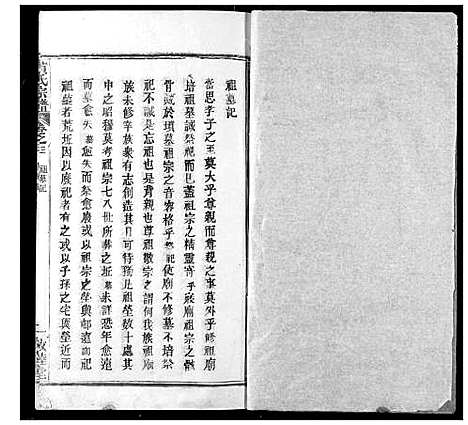 祖墓記
嘗思孝子之至莫大乎尊親而尊親之事莫外乎修祖廟
培祖墓誠祭祀而已蓋祖宗之精靈寄乎廟祖宗之骸
骨藏於墳墓祖宗之音容格乎祭祀使廟不修墓不培祭
祀不誠是忘祖也是背親也尊祖敬宗之謂何我族祖廟
族未修幸族眾有志創造其工可待獨此祖塋數十
申之昭穆莫考祖宗七八世所葬之坵墓未詳恐年愈遠
而墓愈失墓愈失而祭愈廢或以祖宗之塋與鄰遠而祀
祖墓者荒坵因以廢祀者有之或以子孫之宅與塋近而
黃氏宗譜
卷之三
祖墓記
一
敦睦堂